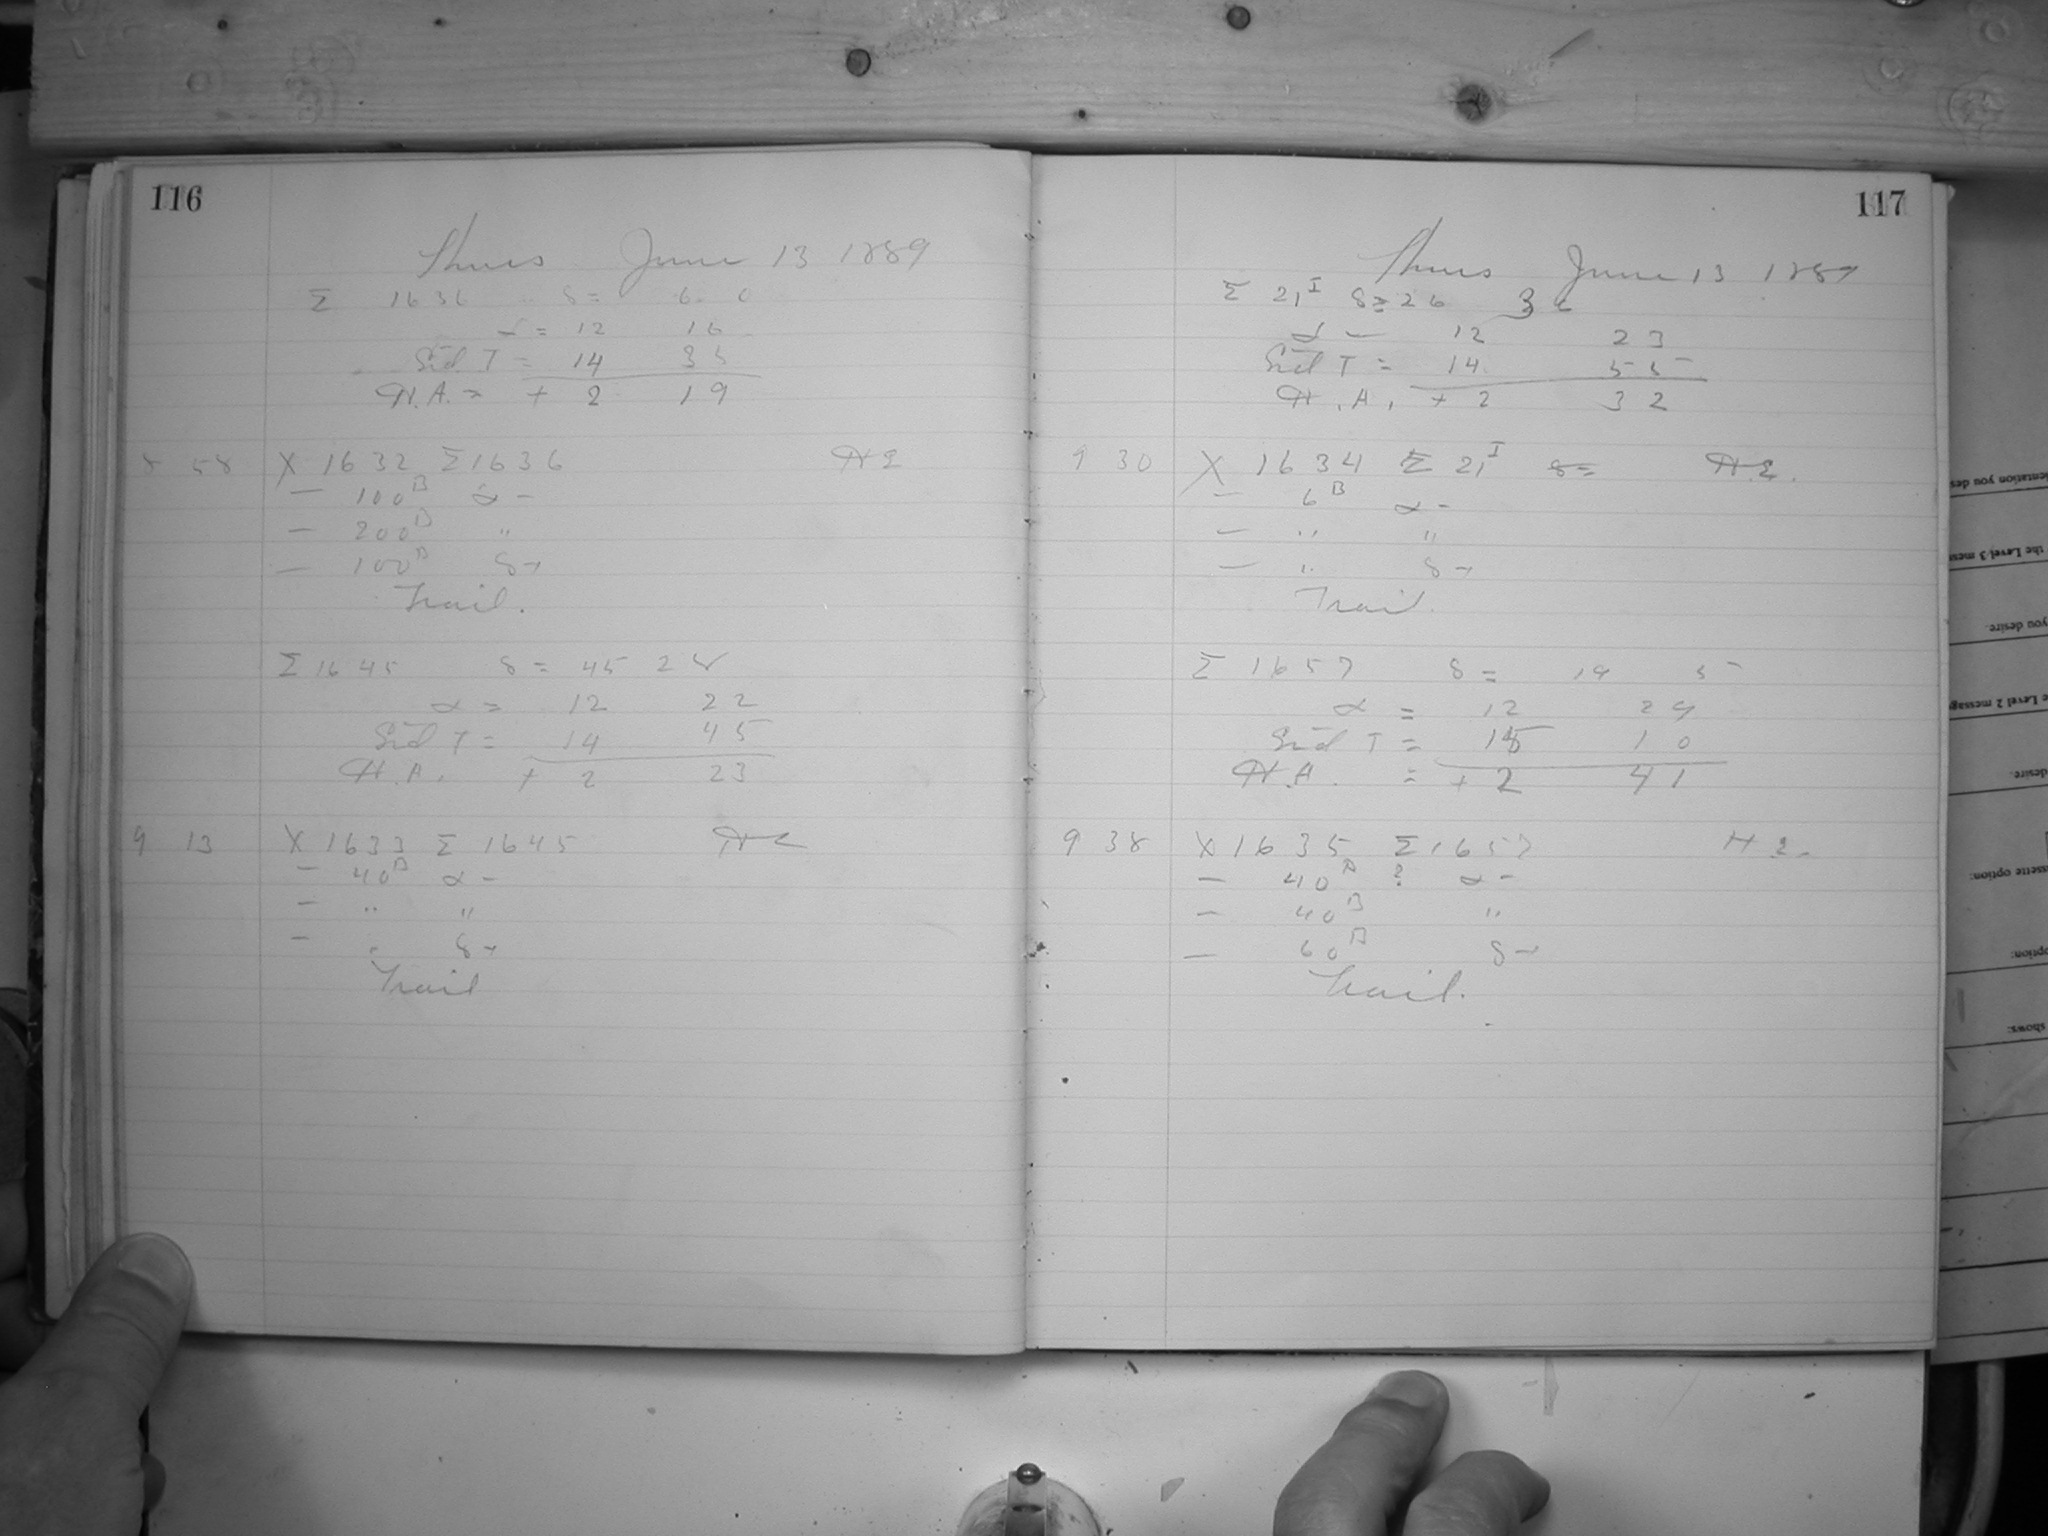 116
Thurs June 13 1889
Σ 1636 δ = 6 0
α = 12 16
Sid T = 14 35
H.A. = + 2 19
8 58 X 1632 Σ 1636 HE
— 100B α -
— 200B "
— 100B δ +
Trail.
Σ 1645 δ = 45 28
α = 12 22
Sid T = 14 45
H.A. + 2 23
9 13 X 1633 Σ 1645
— 40B α -
— " "
— " δ +
Trail
117
Thurs June 13 1889
Σ 21 I δ = 26 36
α — 12 23
Sid T = 14 55
H.A. + 2 32
9 30 X 1634 Σ 21 I δ = H.E.
— 6B α -
— " "
— " δ +
Trail.
Σ 1657 δ = 19 5
α = 12 29
Sid T = 15 10
H.A. = + 2 41
9 38 X 1635 Σ 1657 H E.
— 40B ? α -
— 40B "
— 60B δ +
Trail.
entation you des
the Level 3 mess
you desire.
e Level 2 message
desire.
ssette option:
option:
shows: